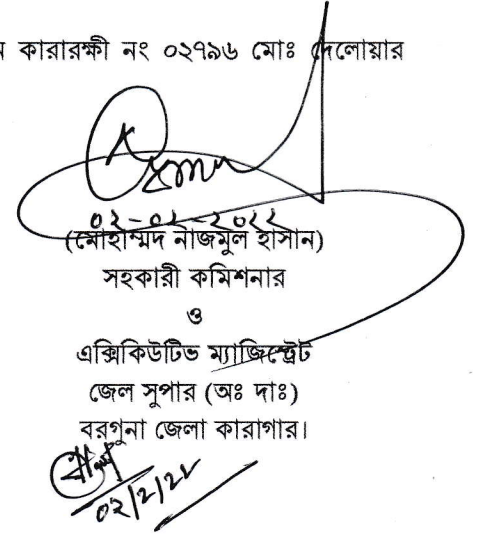 ন কারারক্ষী নং ০২৭৯৬ মোঃ দেলোয়ার
০২-০২-২০২২
(মোহাম্মদ নাজমুল হাসান)
সহকারী কমিশনার
ও
এক্সিকিউটিভ ম্যাজিস্ট্রেট
জেল সুপার (অঃ দাঃ)
বরগুনা জেলা কারাগার।
০২/২/২২